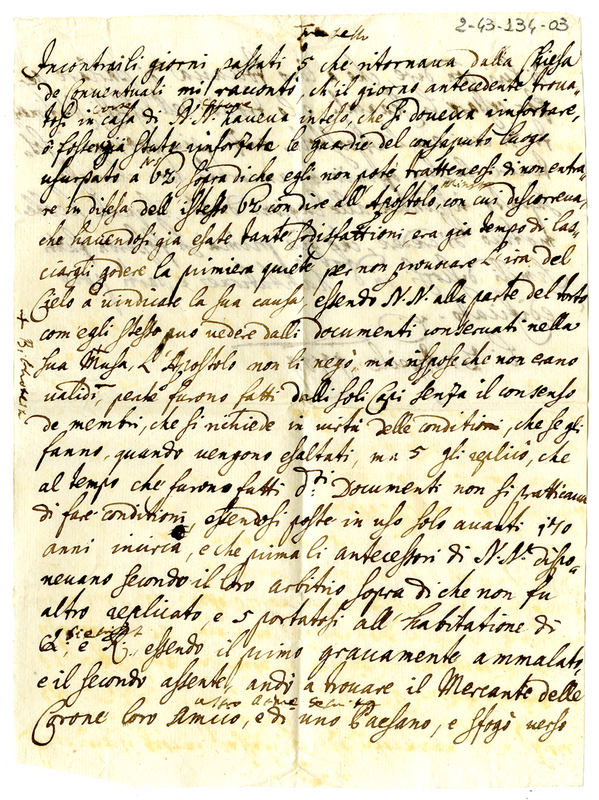 2-43-134-03
Incontrai li giorni passati 5 che ritornava dalla Chiesa
de Conventuali mi raccontò, ch'il giorno antecedente trova-
tosi in casa di N.N. haveva inteso, che si doveva rinforzare,
ò fosse già stata rinforzata le guardie del consaputo luogo
usurpato a 62 sopra di che egli non potè trattenersi di non entra-
re in difesa dell'istesso 62 con dire all'Apostolo, con cui discorreva,
che havendosi già esate tante sodisfattioni era già tempo di las-
ciargli godere la primiera quiete per non provocare l'ira del
Cielo à vindicare la sua causa, essendo N.N. alla parte del torto
com'egli stesso può vedere dalli documenti conservati nella
sua Musa, L'Apostolo non li negò, ma rispose che non erano
validi, perche furono fatti dalli soli Capi senza il consenso
de membri, che si richiede in virtù delle conditioni, che se gli
fanno, quando vengono esaltati, ma 5 gli replicò, che
al tempo che furono fatti d.ti Documenti non si pratticava
di fare conditioni, essendosi poste in uso solo avanti 170
anni in circa, e che prima li antecessori di N.N. dispo-
nevano secondo il loro arbitrio sopra di che non fu
altro replicato, e 5 portatosi all'habitatione di
essendo il primo gravamente ammalato,
e il secondo assente, andò a trovare il Mercante delle
Corone loro Amico, e di uno Paesano, e sfogò verso